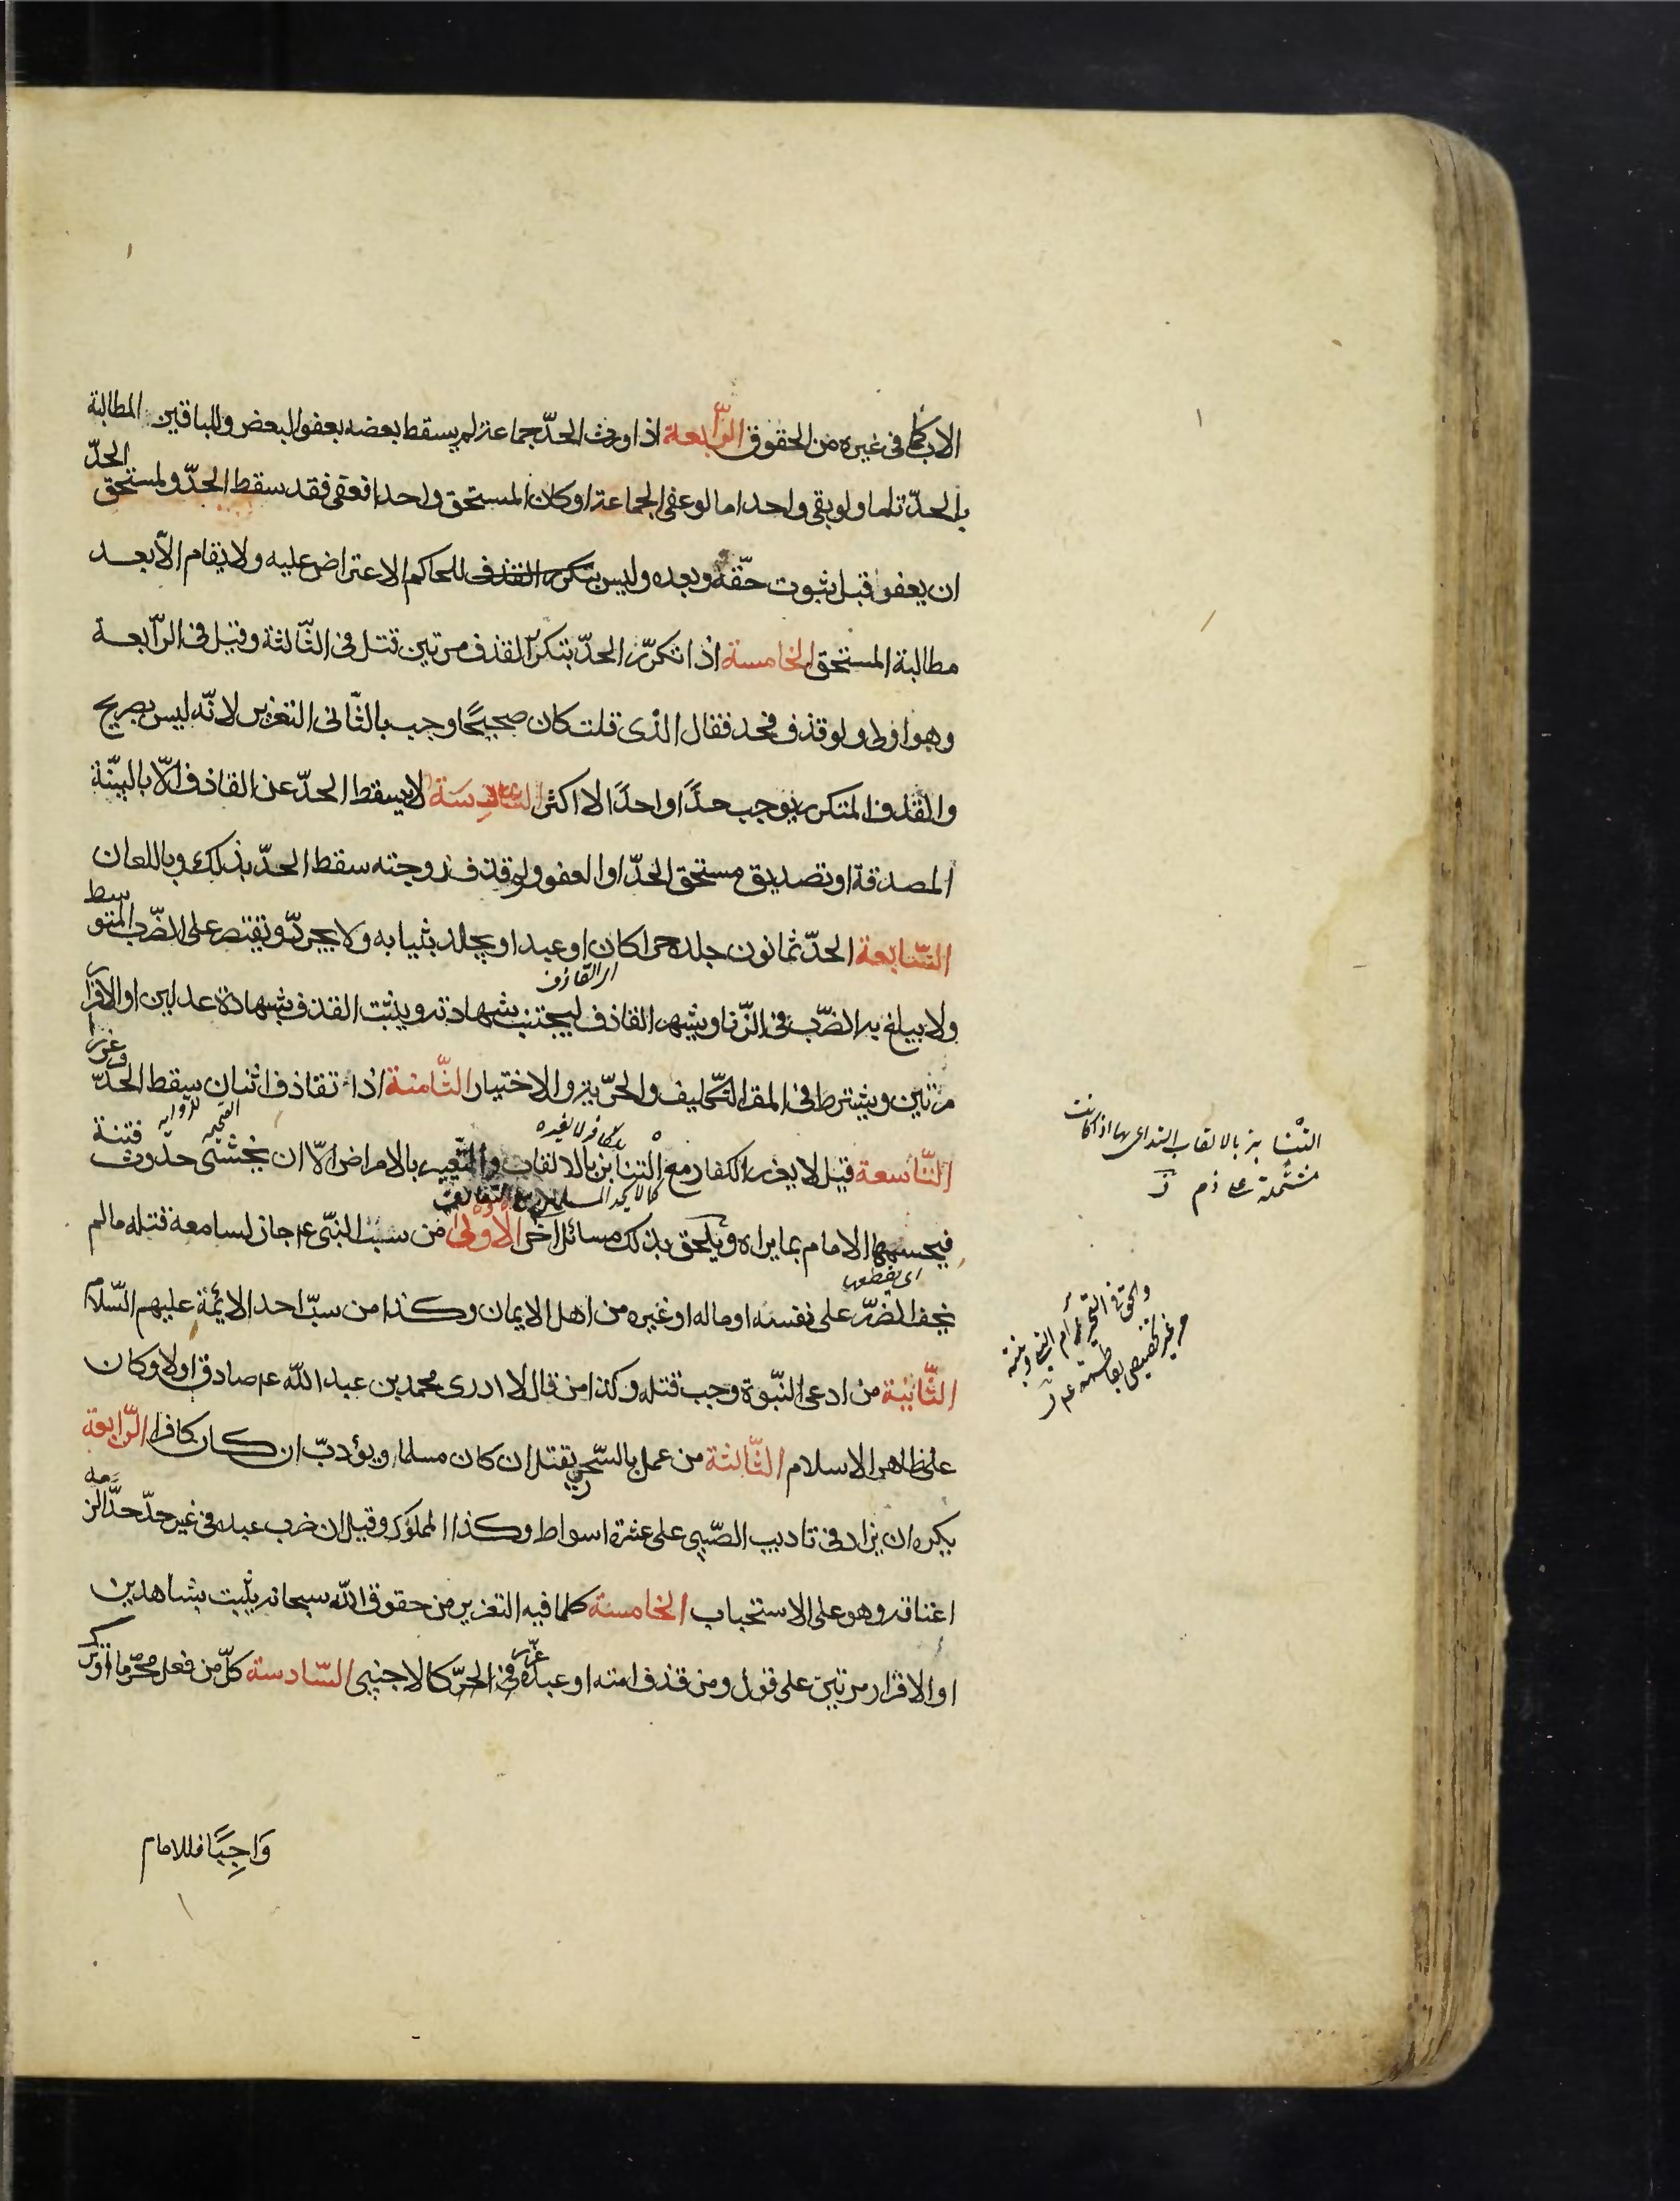 الاب كما فى غيره من الحقوق الرّابعة اذا ورث الحدّ جماعة لم يسقط بعضه بعفو البعض وللباقين المطالبة
بالحدّ تاما ولو بقى واحد اما لو عفى الجماعة او كان المستحق واحدا فعفى فقد سقط الحدّ ولمستحق الحدّ
ان يعفو قبل ثبوت حقّه وبعده وليس للحاكم الاعتراض عليه ولا يقام الّا بعد
مطالبة المستحق الخامسة اذا تكرّر الحدّ بتكرر القذف مرتين قتل فى الثّالثة وقيل فى الرّابعة
وهو اولى ولو قذف فحد فقال الذى قلت كان صحيحًا وجب بالثّانى التعزير لانّه ليس بصريح
والقذف المتكرر يوجب حدًّا واحدًا لا اكثر السّادِسَة لا يسقط الحدّ عن القاذف الّا بالبيّنة
المصدقة او تصديق مستحق الحدّ او العفو ولو قذف زوجته سقط الحدّ بذلك وباللعان
السّابعة الحدّ ثمانون جلدة حرا كان او عبدا ويجلد بثيابه ولا يجردّ ويقتصر على الضّرب المتوسط
ولا يبلغ به الضّرب فى الزّنا ويشهر القاذف ليجتنب شهادته ويثبّت القذف بشهادة عدلين او الاقرار
اى القاذف
مرّتين ويشترط فى المقر التّكليف والحرّية والاختيار الثّامنة اذا تقاذف اثنان سقط الحدّ وعزرا
التّاسعة قيل لا يعزر الكفار مع التنابز بالالقاب والتّعيير بالامراض الّا ان يخشى حدوث فتنة
فيحسمها الامام بما يراه ويلحق بذلك مسائل اخر الاولى من سبّ النبّى عم جاز لسامعه قتله ما لم
اى يقطعها
يخف الضرّر على نفسه او ماله او غيره من اهل الايمان وكذا من سبّ احد الائمّة عليهم السّلام
الثّانية من ادعى النّبوة وجب قتله وكذا من قال لا ادرى محمد بن عبد الله عم صادق اولا وكان
على ظاهر الاسلام الثّالثة من عمل بالسّحر يقتل ان كان مسلما ويؤدبّ ان كان كافرا الرّابعة
يكره ان يزاد فى تاديب الصّبى على عشرة اسواط وكذا المملوك وقيل ان ضرب عبده فى غير حدّ حدّا لزمه
اعتاقه وهو على الاستحباب الخامسة كلما فيه التعزير من حقوق الله سبحانه يثبت بشاهدين
او الاقرار مرتين على قول ومن قذف امته او عبده عزّر فى الحرّ كالاجنبى السّادسة كلّ من فعل محرّما او ترك
وَاجِبًا فللامام
التّنابز بالالقاب التداعى بها اذا كانت
مشتملة على ذم